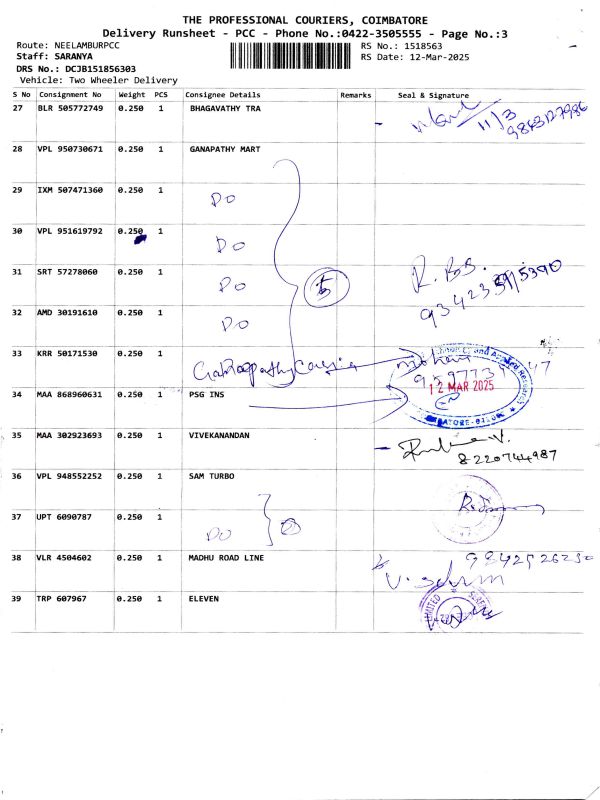 THE PROFESSIONAL COURIERS, COIMBATORE
Delivery Runsheet - PCC - Phone No.:0422-3505555 - Page No.:3
Route: NEELAMBURPCC RS No.: 1518563
Staff: SARANYA RS Date: 12-Mar-2025
DRS No.: DCJB151856303
Vehicle: Two Wheeler Delivery
S No Consignment No Weight PCS Consignee Details Remarks Seal & Signature
27 BLR 505772749 0.250 1 BHAGAVATHY TRA
11/3
28 VPL 950730671 0.250 1 GANAPATHY MART
29 IXM 507471360 0.250 1 DO
30 VPL 951619792 0.250 1 DO
31 SRT 57278060 0.250 1 DO 5 R. Bos.
32 AMD 30191610 0.250 1 DO
33 KRR 50171530 0.250 1
12 MAR 2025
34 MAA 868960631 0.250 1 PSG INS
35 MAA 302923693 0.250 1 VIVEKANANDAN
8220744987
36 VPL 948552252 0.250 1 SAM TURBO
37 UPT 6090787 0.250 1 DO
38 VLR 4504602 0.250 1 MADHU ROAD LINE
39 TRP 607967 0.250 1 ELEVEN